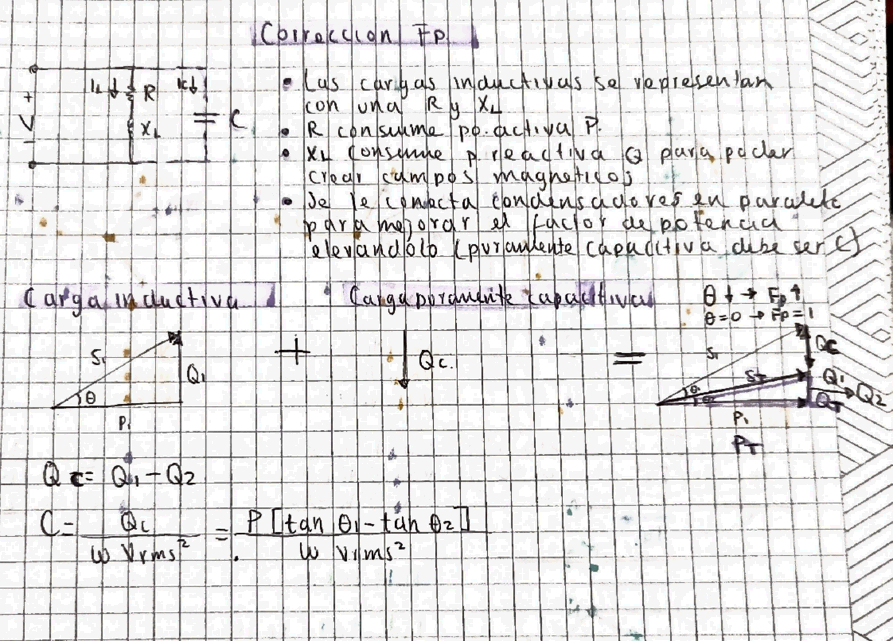 Correccion Fp.
IL ↓ R Ic↓
+ V - XL C
• Las cargas inductivas se representan
con una R y XL
• R consume po. activa P.
• XL consume p. reactiva Q para poder
crear campos magneticos
• Se le conecta condensadores en paralelo
para mejorar el factor de potencia
elevandolo (puramente capacitiva debe ser C)
Carga inductiva Carga puramente capacitiva
θ ↓ → Fp ↑
θ=0 → Fp=1
S1 Q1 θ P1
+ Qc. =
S1 Qc ST Q1 Q2 QT θ P1
PT
Qc = Q1 - Q2
C = Qc / ω Vrms² = P [tan θ1 - tan θ2] / ω Vrms²